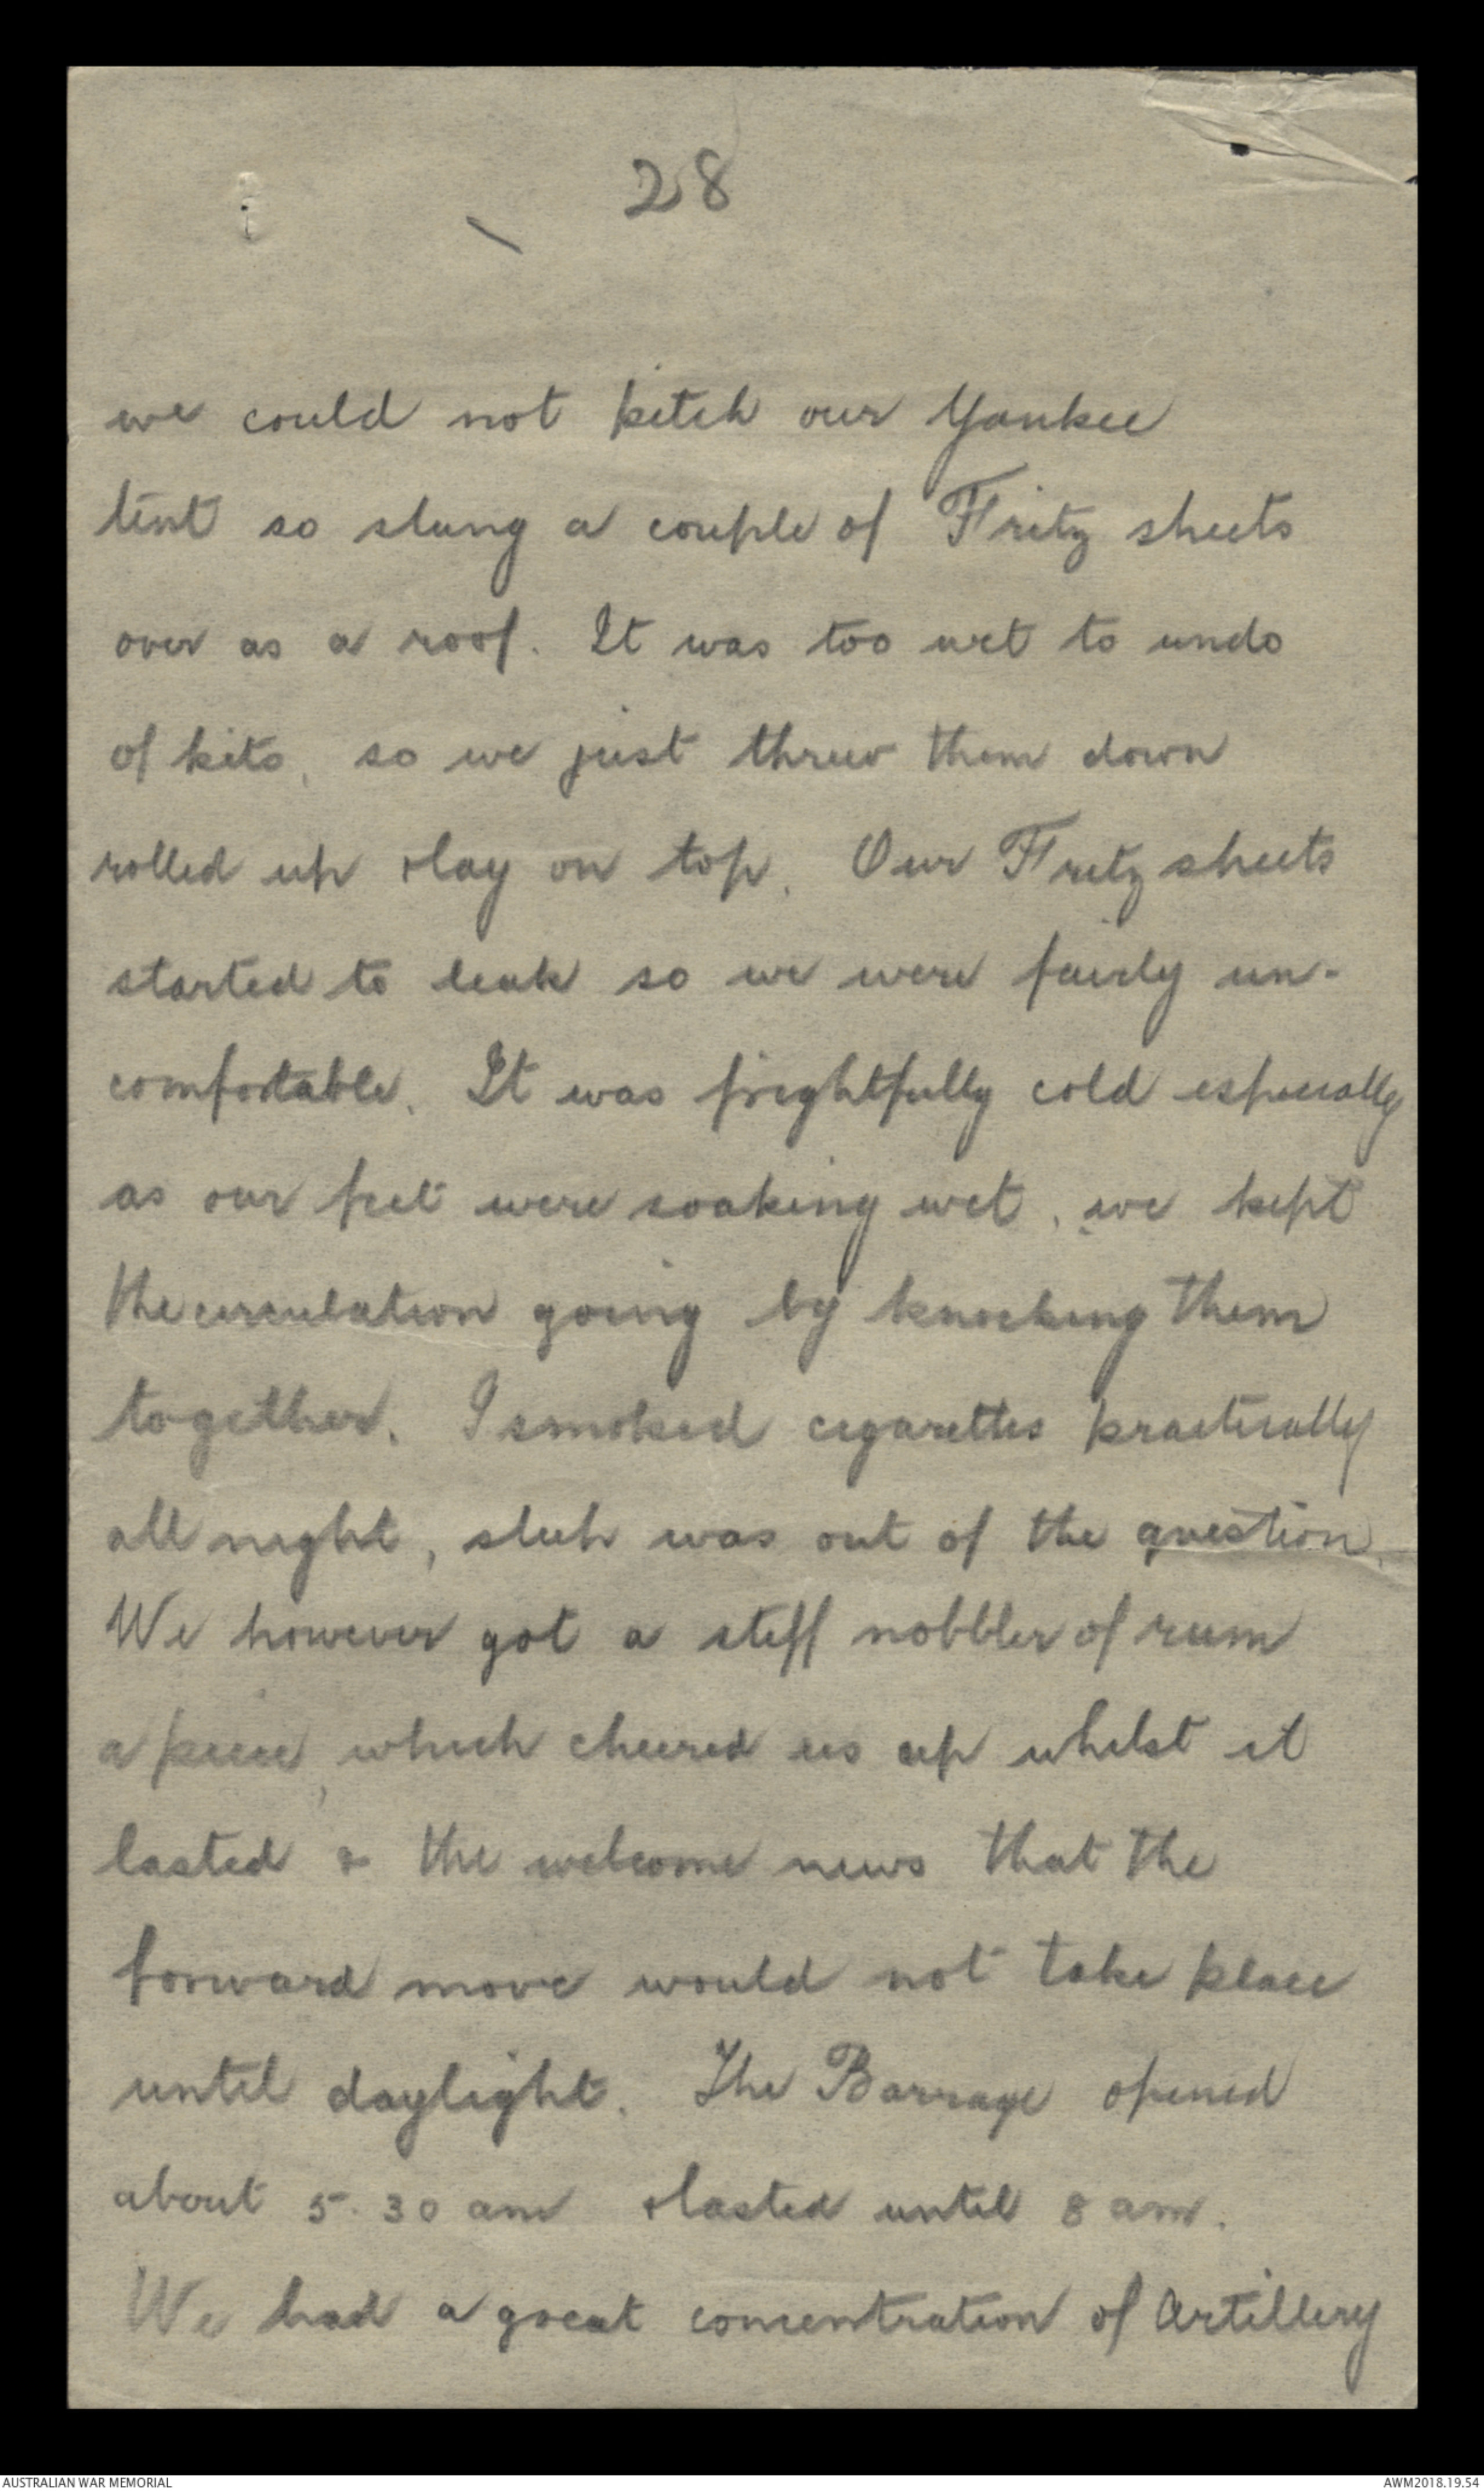 28
we could not pitch our Yankee
tent so slung a couple of Fritz sheets
over as a roof. It was too wet to undo
of kits, so we just threw them down
rolled up & lay on top. Our Fritz sheets
started to leak so we were fairly un-
comfortable. It was frightfully cold especially
as our feet were soaking wet, we kept
the circulation going by knocking them
together. I smoked cigarettes practically
all night, sleep was out of the question.
We however got a stiff nobbler of rum
a piece, which cheered us up whilst it
lasted & the welcome news that the
forward move would not take place
until daylight. The Barrage opened
about 5.30 am & lasted until 8 am.
We had a great concentration of Artillery
AUSTRALIAN WAR MEMORIAL
AWM2018.19.54